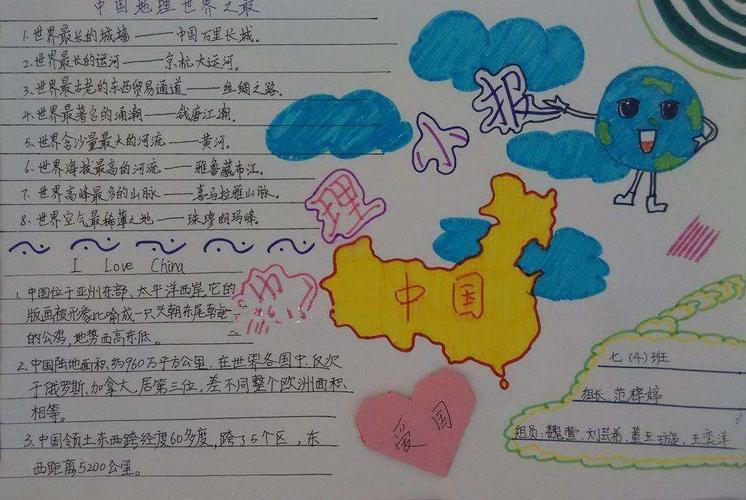 中国地理世界之最
1.世界最长的城墙——中国万里长城。
2.世界最长的运河——京杭大运河。
3.世界最古老的东西贸易通道——丝绸之路。
4.世界最著名的涌潮——钱唐江潮。
5.世界含沙量最大的河流——黄河。
6.世界海拔最高的河流——雅鲁藏布江。
7.世界高峰最多的山脉——喜马拉雅山脉。
8.世界空气最稀薄之地——珠穆朗玛峰。
I Love China
1.中国位于亚州东部、太平洋西岸,它的
版画被形象比喻成一只头朝东尾朝西
的公鸡,地势西高东低。
2.中国陆地面积,约960万平方公里,在世界各国中,仅次
于俄罗斯、加拿大,居第三位,差不同整个欧洲面积,
相等。
3.中国领土东西跨经度60多度,跨了5个区,东
西距离5200公里。
理小报
中国
爱国
七(4)班
组长:范梓婷
组员:魏萱、刘芸希、董玉